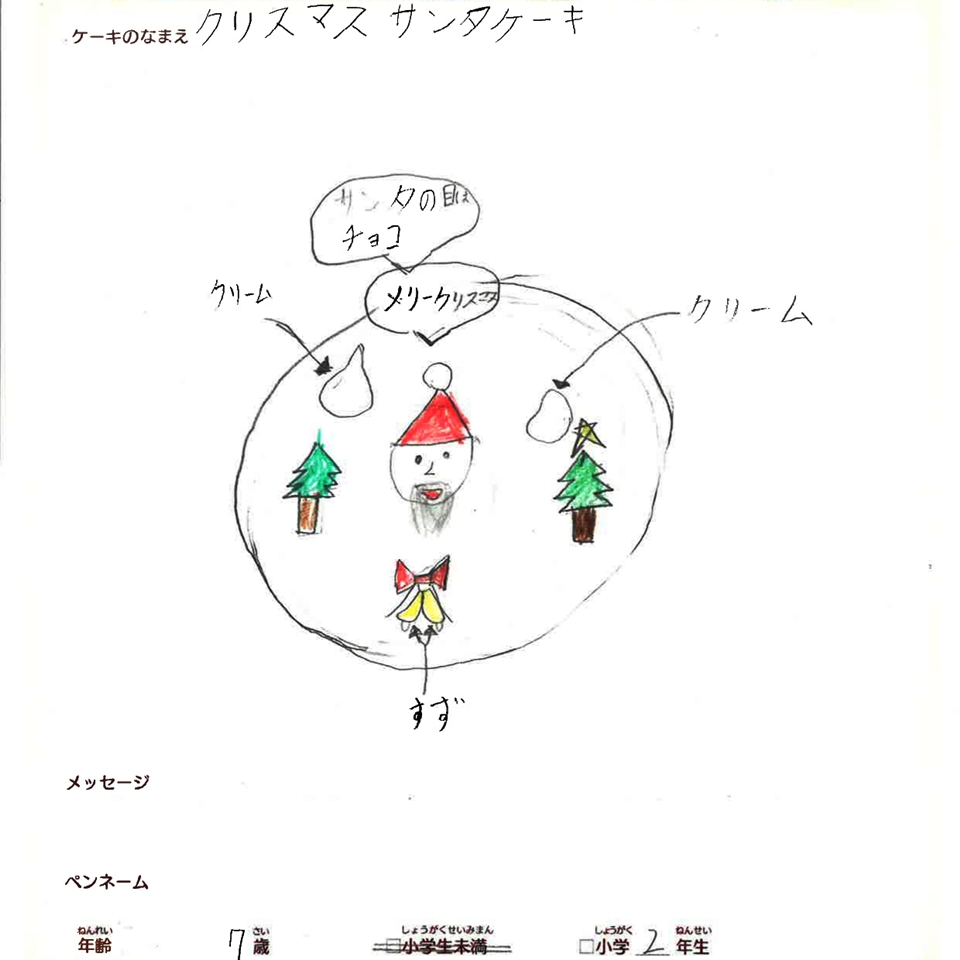 ケーキのなまえ クリスマスサンタケーキ
サンタの目は
チョコ
メリークリスマス
クリーム
クリーム
すず
メッセージ
ペンネーム
ねんれい さい しょうがくせいみまん しょうがく ねんせい
年齢 7 歳 □小学生未満 □小学 2 年生